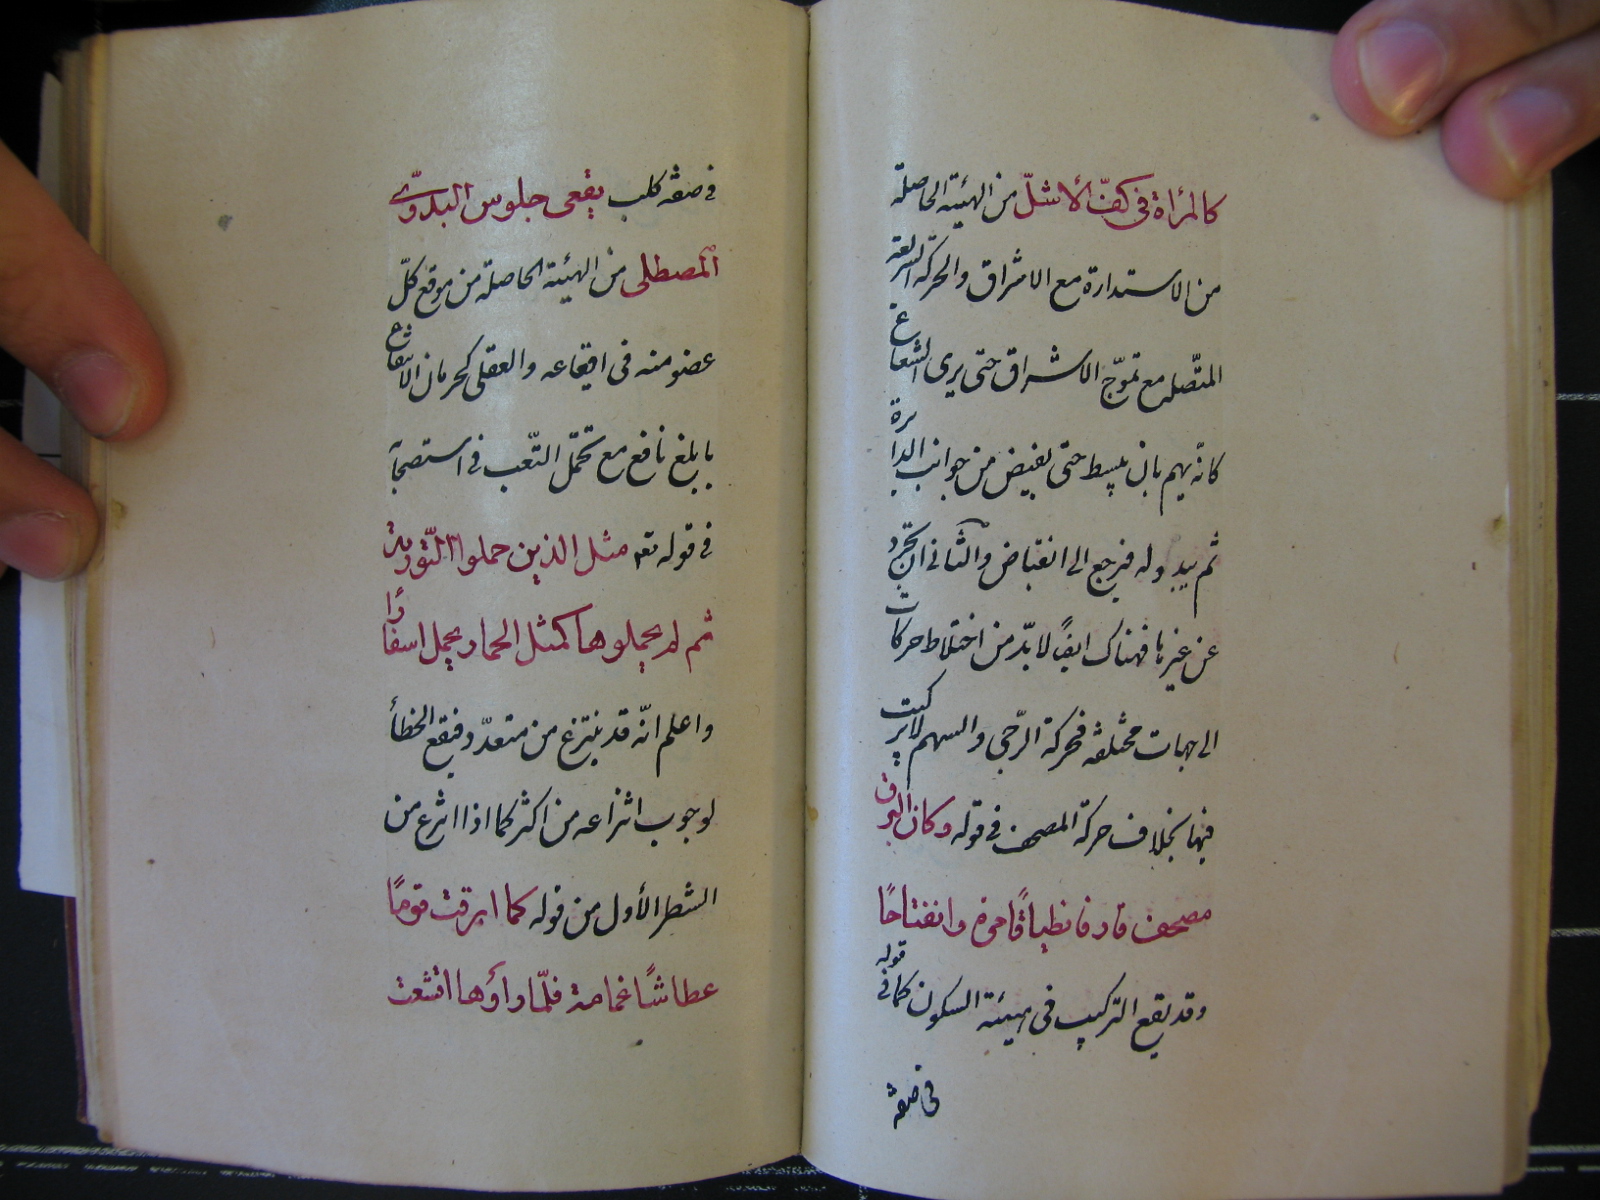 كالمرأة فى كفّ الأشلّ من الهيئة الحاصلة
من الاستدارة مع الاشراق والحركة السريعة
المتّصلة مع تموّج الاشراق حتى يرى الشعاع
كانّه يهم بان ينبسط حتى يفيض من جوانب الدائرة
ثم يبدو له فيرجع الى انقباض والثانى ان تجرد
عن غيرها فهناك ايضًا لا بدّ من اختلاط حركات
الى جهات مختلفة فحركة الرّحى والسهم لا تركيب
فيها بخلاف حركة المصحف فى قوله وكان البرق
مصحف قار فانطباقًا مرة وانفتاحًا
وقد يقع التركيب فى هيئة السكون كما فى قوله
فى صفة
فى صفة كلب يقعى جلوس البدوىّ
المصطلى من الهيئة الحاصلة من موقع كلّ
عضو منه فى اقعاءه والعقلى كحرمان الانتفاع
بابلغ نافع مع تحمّل التّعب فى استصحابه
فى قوله تع مثل الذين حملوا التّورية
ثم لم يحملوها كمثل الحمار يحمل اسفارًا
واعلم انّه قد ينتزع من متعدّد فيقع الخطأ
لوجوب انتزاعه من اكثر كما اذا انتزع من
الشطر الأول من قوله كما ابرقت قومًا
عطاشًا غمامة فلمّا رأوها اقشعت